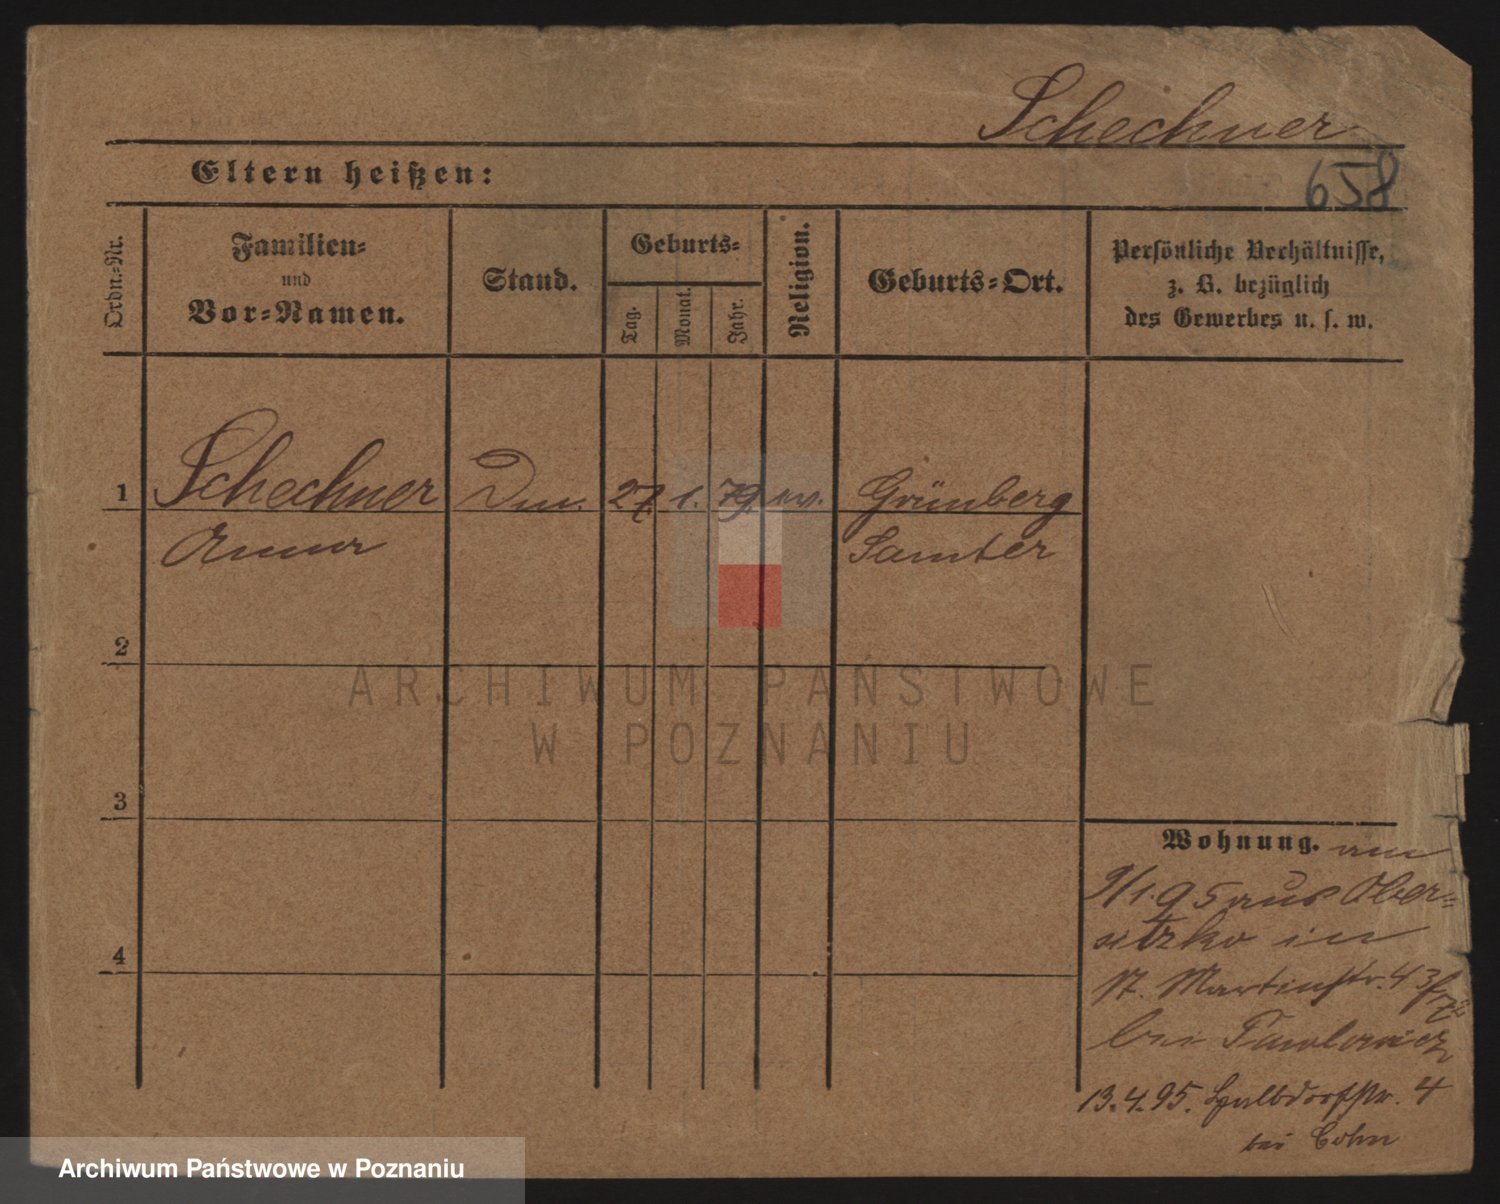 Schechner
Eltern heißen:
658
Ordn.=Nr.
Familien=
und
Vor=Namen.
Stand.
Geburts=
Tag.
Monat.
Jahr.
Religion.
Geburts=Ort.
Persönliche Verhältnisse,
z. B. bezüglich
des Gewerbes u. s. w.
1 Schechner 27. 1. 79. ev. Grünberg
Anna Samter
2
3
4
ARCHIWUM PAŃSTWOWE
W POZNANIU
Wohnung. am
9/1.95 aus Ober=
sitzko in
St. Martinstr. 43
bei Pawlowicz
13.4.95. Halbdorfstr. 4
bei Cohn
Archiwum Państwowe w Poznaniu